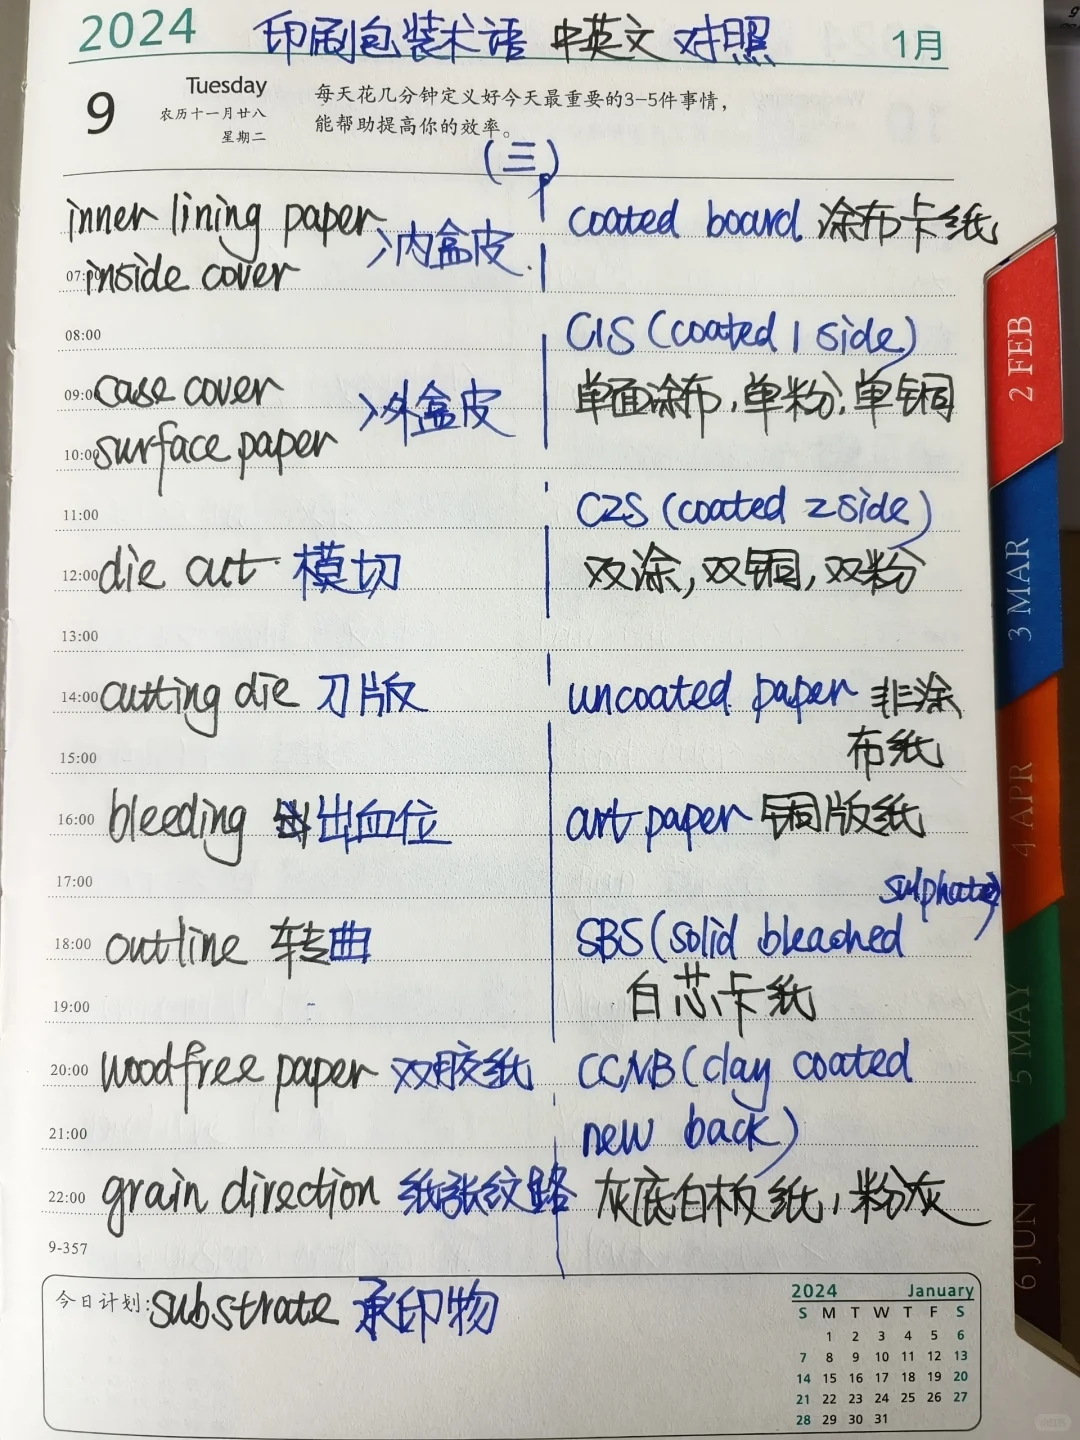 2024 印刷包装术语 中英文对照 1月
9 Tuesday
农历十一月廿八
星期二
每天花几分钟定义好今天最重要的3-5件事情，
能帮助提高你的效率。
(三)
inner lining paper
07:00 inside cover
>内盒皮
08:00
09:00 case cover
10:00 surface paper
>外盒皮
11:00
12:00 die cut 模切
13:00
14:00 cutting die 刀版
15:00
16:00 bleeding 出血位
17:00
18:00 outline 转曲
19:00
20:00 woodfree paper 双胶纸
21:00
22:00 grain direction 纸张纹路
9-357
coated board 涂布卡纸
C1S (coated 1 side)
单面涂布,单粉,单铜
C2S (coated 2 side)
双涂,双铜,双粉
uncoated paper 非涂
布纸
art paper 铜版纸
sulphate)
SBS (solid bleached
白芯卡纸
CCNB (clay coated
new back)
灰底白板纸,粉灰
今日计划: substrate 承印物
2024 January
S M T W T F S
1 2 3 4 5 6
7 8 9 10 11 12 13
14 15 16 17 18 19 20
21 22 23 24 25 26 27
28 29 30 31
2 FEB
3 MAR
4 APR
5 MAY
6 JUN